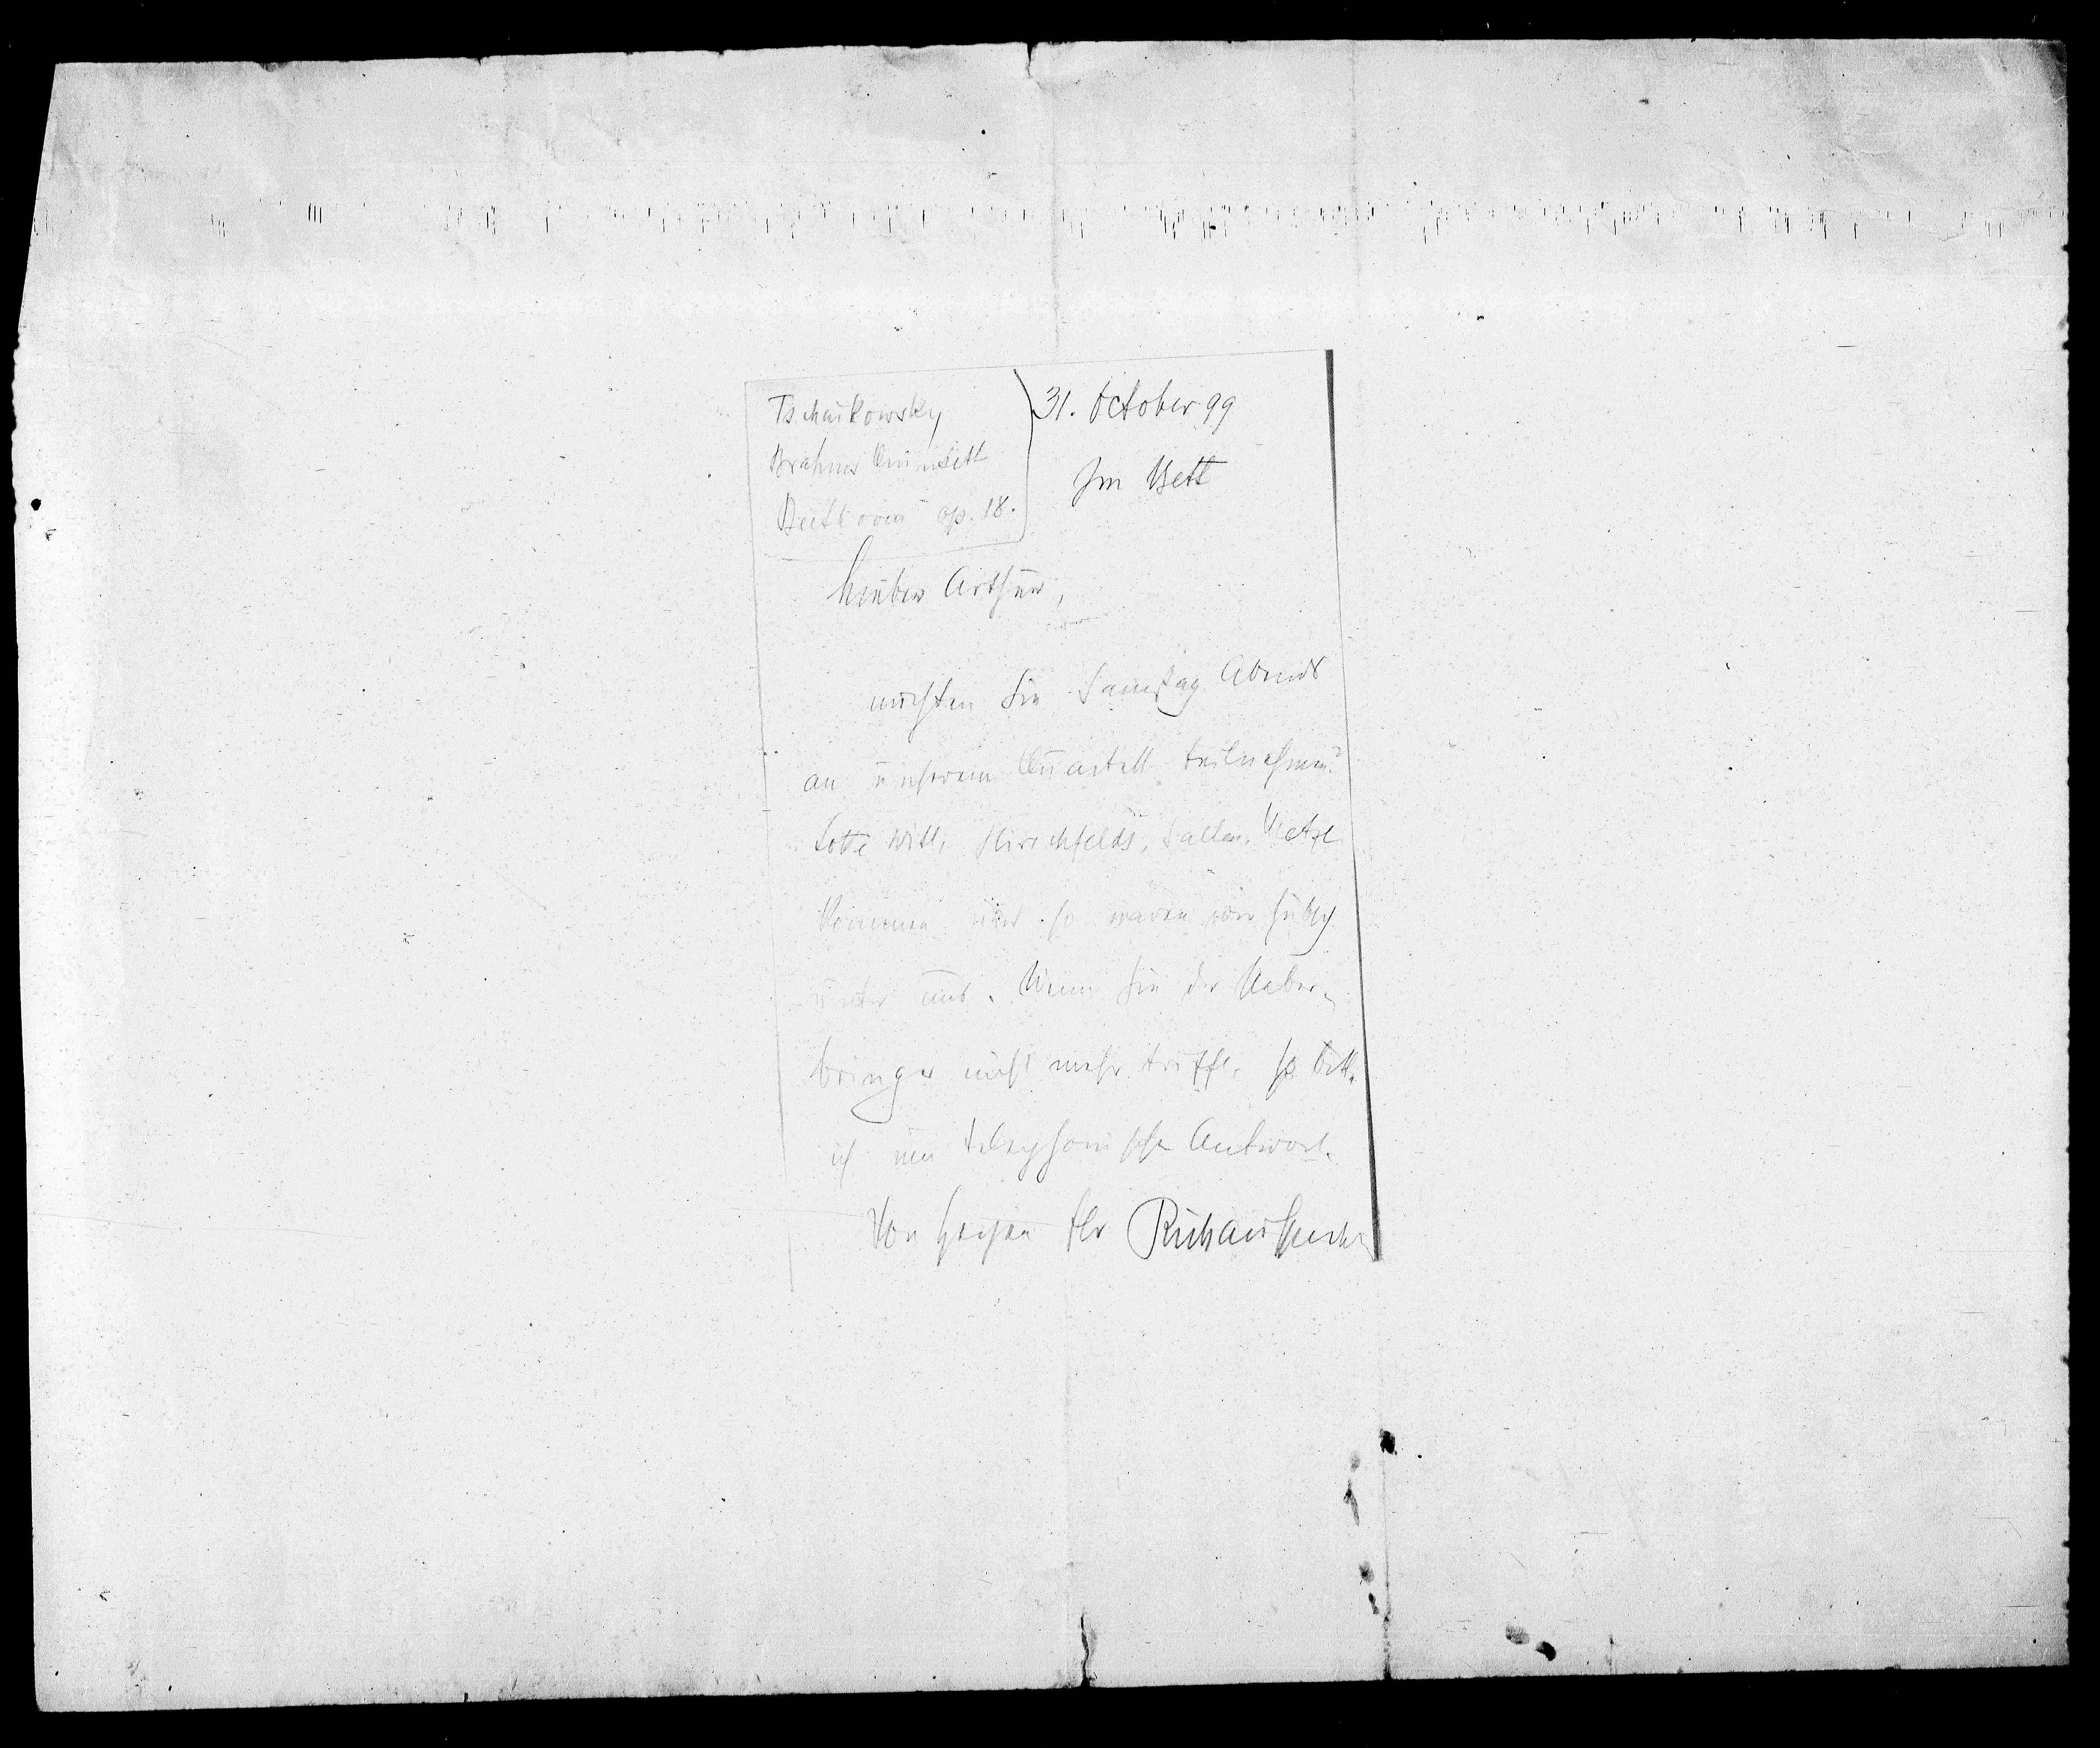 Tschaikowsky
Brahms Quintett
Beethoven op. 18.
31. October 99
Im Bett
Lieber Arthur,
möchten Sie Samstag Abends
an unserem Quartett teilnehmen?
Lotte Witt, Hirschfelds, Salten,
kommen so wären wir hübsch
unter uns. Wenn Sie der Ueber-
bringer nicht mehr trifft, so bitte
ich um telephonische Antwort.
Von Herzen Ihr Richard Specht